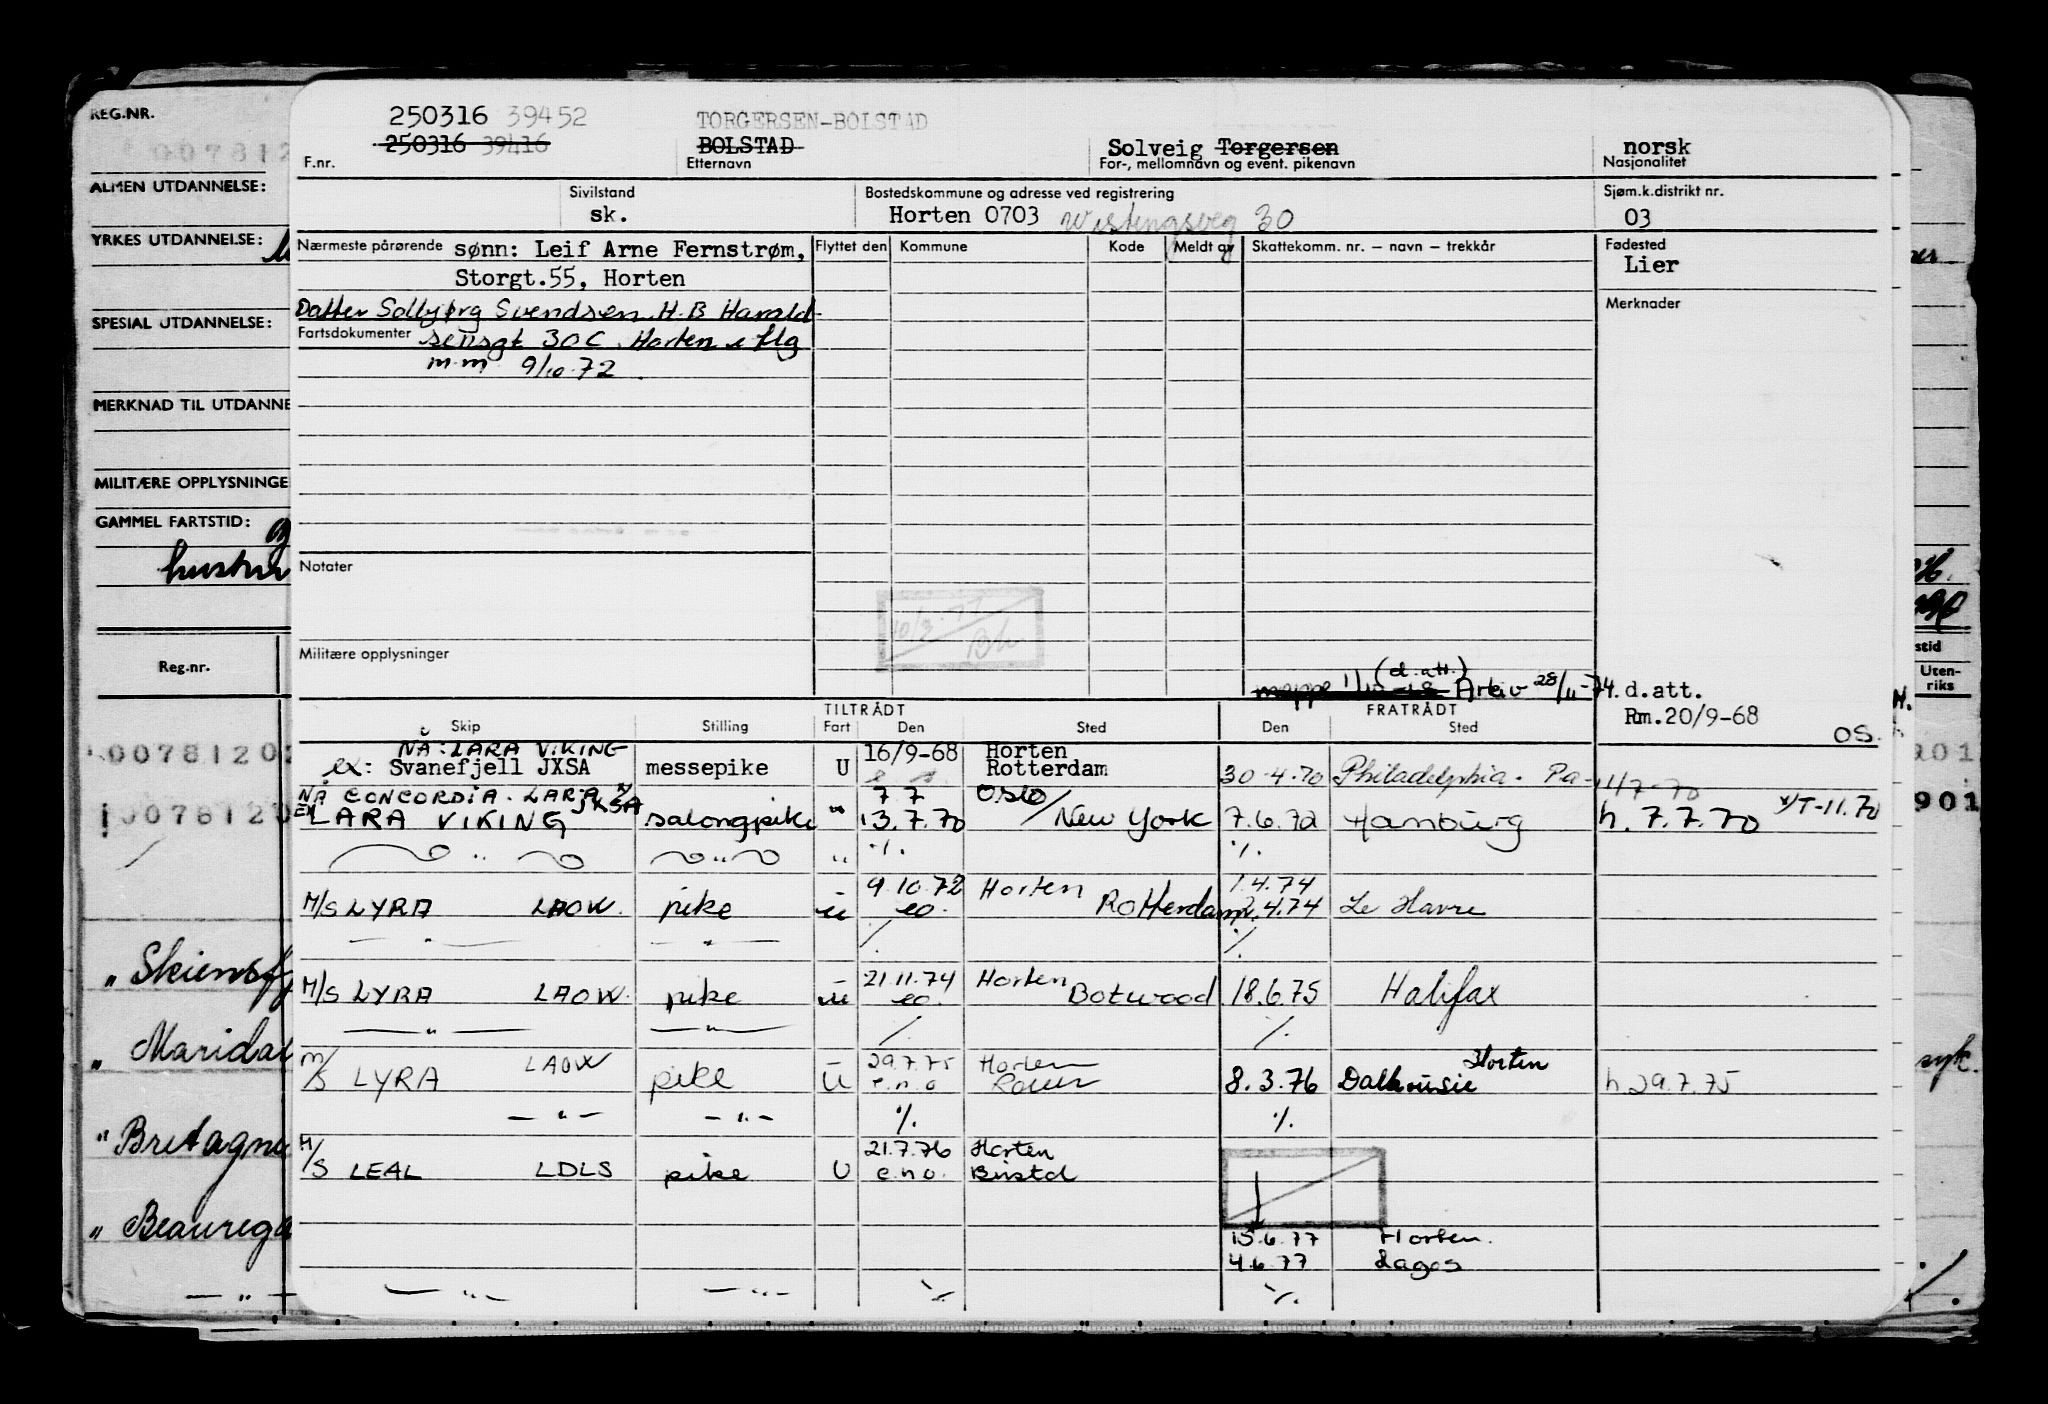 REG.NR.
007812
ALMEN UTDANNELSE:
YRKES UTDANNELSE:
SPESIAL UTDANNELSE:
MERKNAD TIL UTDANNE
MILITÆRE OPPLYSNINGE
GAMMEL FARTSTID:
hustru
Reg.nr.
00781202
0078120
" Skiensfj
" Maridal
" Bretagne
" Beaurega
250316 39452
TORGERSEN-BOLSTAD
250316 39416
BOLSTAD
Solveig Torgersen
norsk
F.nr.
Etternavn
For-, mellomnavn og event. pikenavn
Nasjonalitet
Sivilstand
Bostedskommune og adresse ved registrering
Sjøm.k.distrikt nr.
sk.
Horten 0703 Wistingsveg 30
03
Nærmeste pårørende sønn: Leif Arne Fernstrøm,
Flyttet den Kommune Kode Meldt av Skattekomm. nr. — navn — trekkår
Fødested
Lier
Storgt.55, Horten
Datter Solbjørg Svendsen H.B Harald-
Merknader
Fartsdokumenter sensgt 30C Horten e flg
m.m 9/10.72.
Notater
10/3.77
Bh
Militære opplysninger
mappe 1/10-68 (d.att.) Arkiv 28/11-74. d.att.
Rm.20/9-68
OS.
TILTRÅDT FRATRÅDT
Skip Stilling Fart Den Sted Den Sted
NÅ: LARA VIKING 16/9-68 Horten
ex: Svanefjell JXSA messepike U Rotterdam 30.4.70 Philadelphia. Pa- 1/7-70
NÅ CONCORDIA. LARA JXSA 7.7 Oslo
EX LARA VIKING salongpike " 13.7.70 / New York 7.6.72 Hamburg h. 7.7.70 X/T-11.70
" " " ./. ./.
9.10.72 Horten 1.4.74
M/S LYRA LAOW. pike u eo. Rotterdam 2.4.74 Le Havre
— " — — " — /. ./.
21.11.74 Horten
M/S LYRA LAOW. pike u eo. Botwood 18.6.75 Halifax
— " — — " — /. ./.
29.7.75 Horten Horten
M/S LYRA LAOW pike U e.n.o Rouen 8.3.76 Dalhousie h.29.7.75
— " — — " — ./. ./.
21.7.76 Horten
M/S LEAL LDLS pike U e.n.o. Bristol
15.6.77 Horten.
4.6.77 Lagos
— " — — " — ./. ./.
stid
Uten-
riks
201
901
syk.